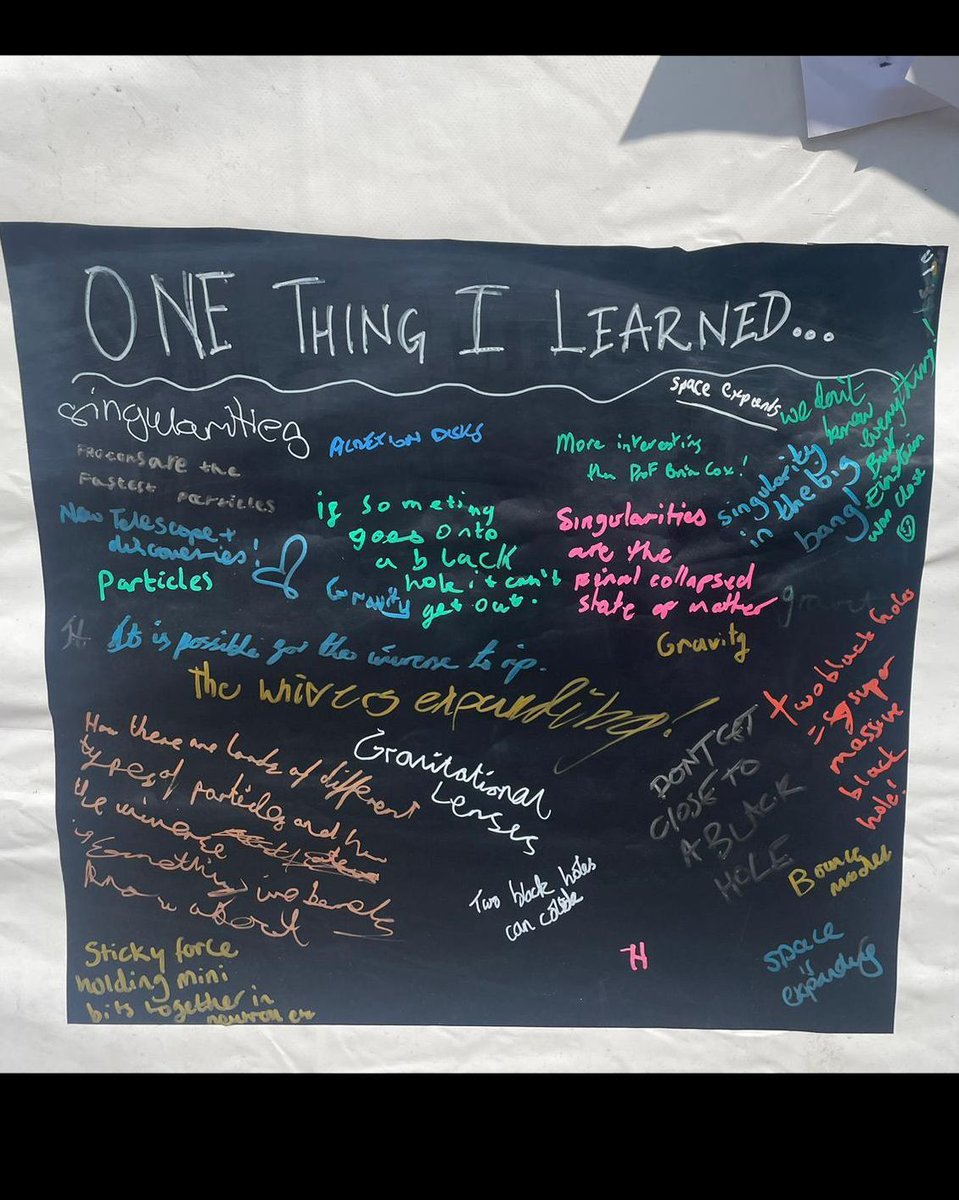 ONE THING I LEARNED...
space expands
singularities
ACRETION DISKS
are the
fastest particles
More interesting
than Prof Brian Cox!
we don't
know
everything!
But
Einstein
was close
singularity
in the big
bang
New Telescope +
discoveries!
Particles
if someting
goes onto
a black
hole it can't
get out.
Gravity
Singularities
are the
final collapsed
state of matter
Gravity
H
It is possible for the universe to rip.
the univers expanding!
two black holes
= super
massive
black
hole!
How there are loads of different
types of particles and how
the universe
is something we barely
know about
Gravitational
Lenses
DON'T GET
CLOSE TO
A BLACK
HOLE
Bounce
model
Two black holes
can collide
H
space
is
expanding
Sticky force
holding mini
bits together in